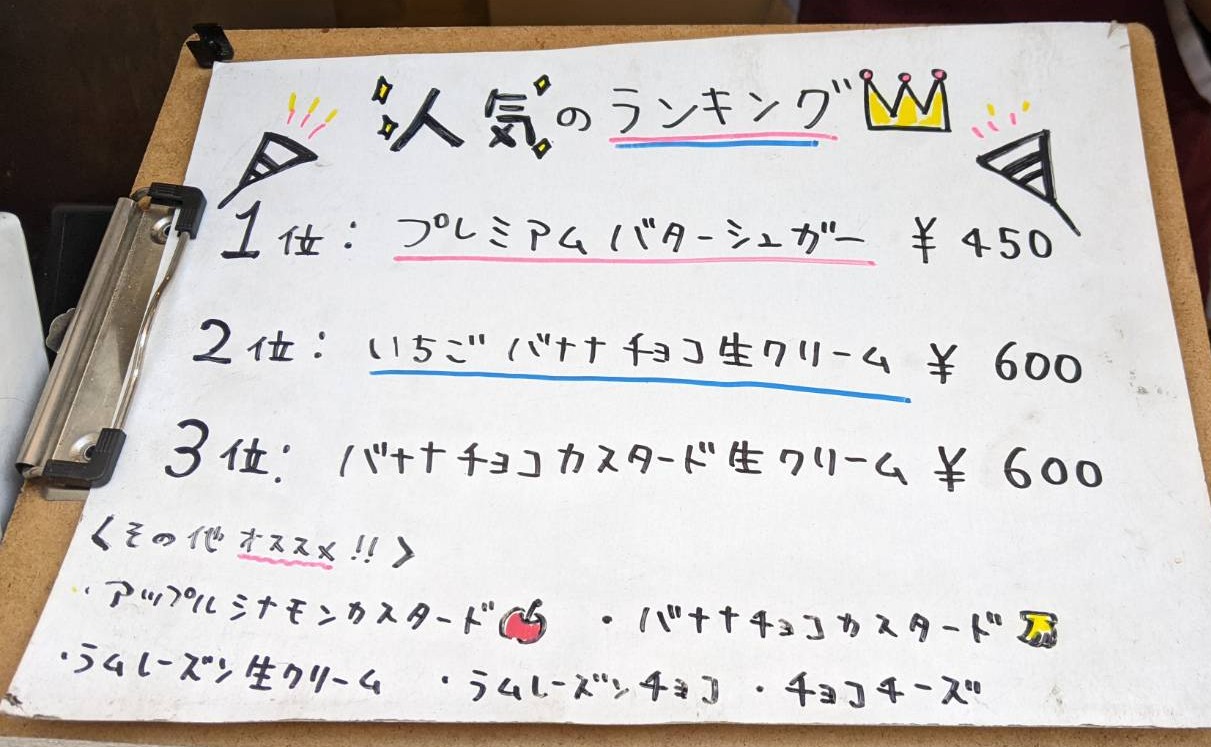 人気のランキング
1位：プレミアムバターシュガー ¥450
2位：いちごバナナチョコ生クリーム ¥600
3位：バナナチョコカスタード生クリーム ¥600
〈その他オススメ!!〉
・アップルシナモンカスタード ・バナナチョコカスタード
・ラムレーズン生クリーム ・ラムレーズンチョコ ・チョコチーズ